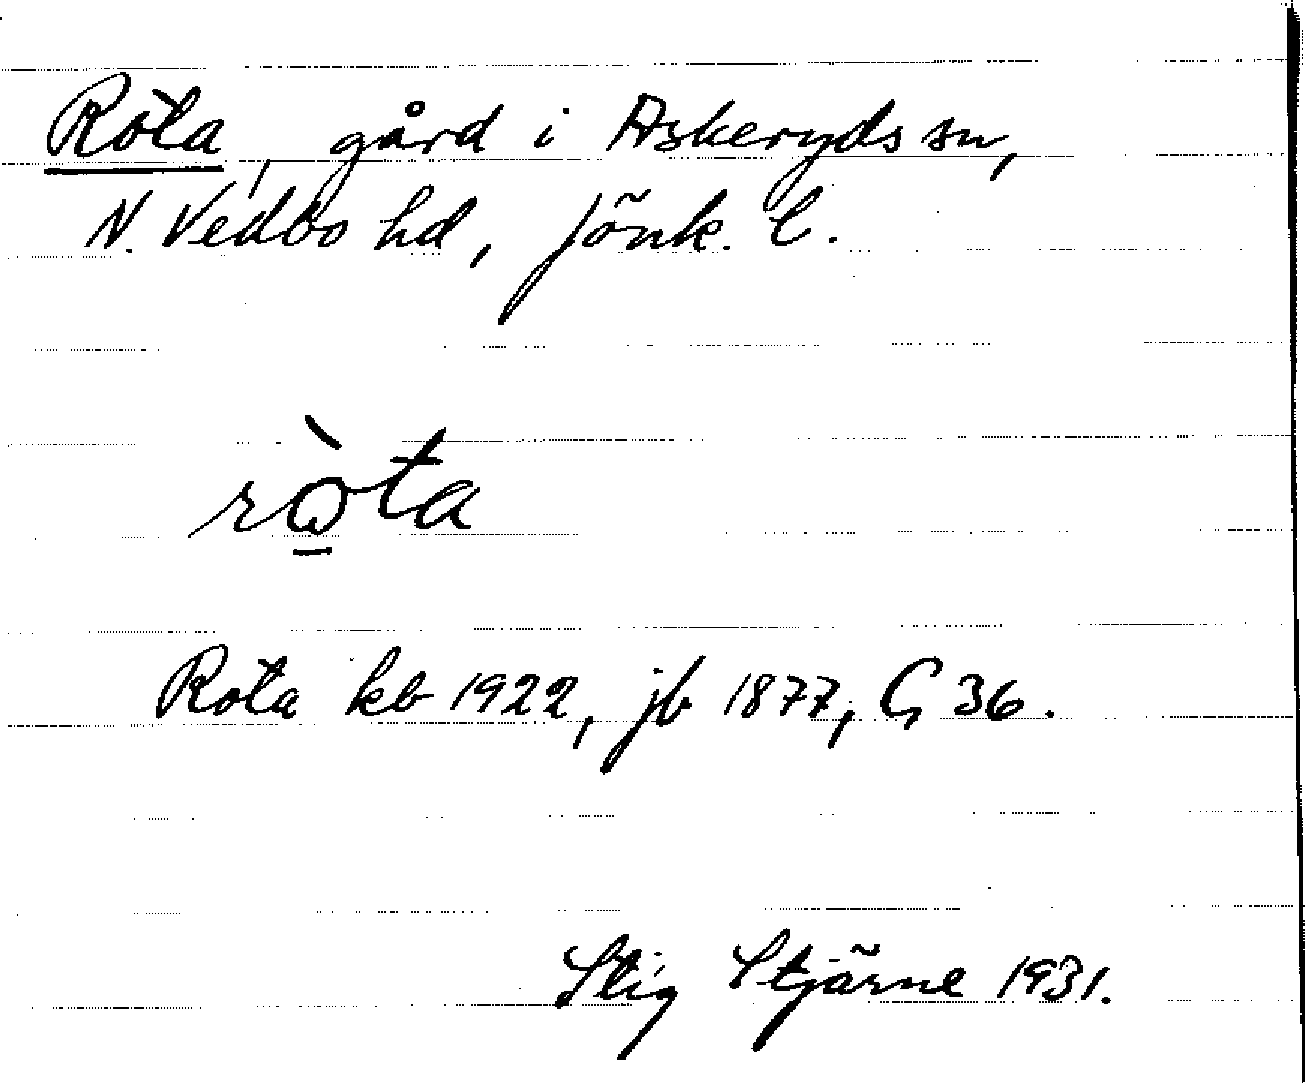 Rota, gård i Askeryds sn,
N. Vedbo hd, Jönk. l.
rò̱ta
Rota kb 1922, jb 1877, G 36.
Stig Stjärne 1931.